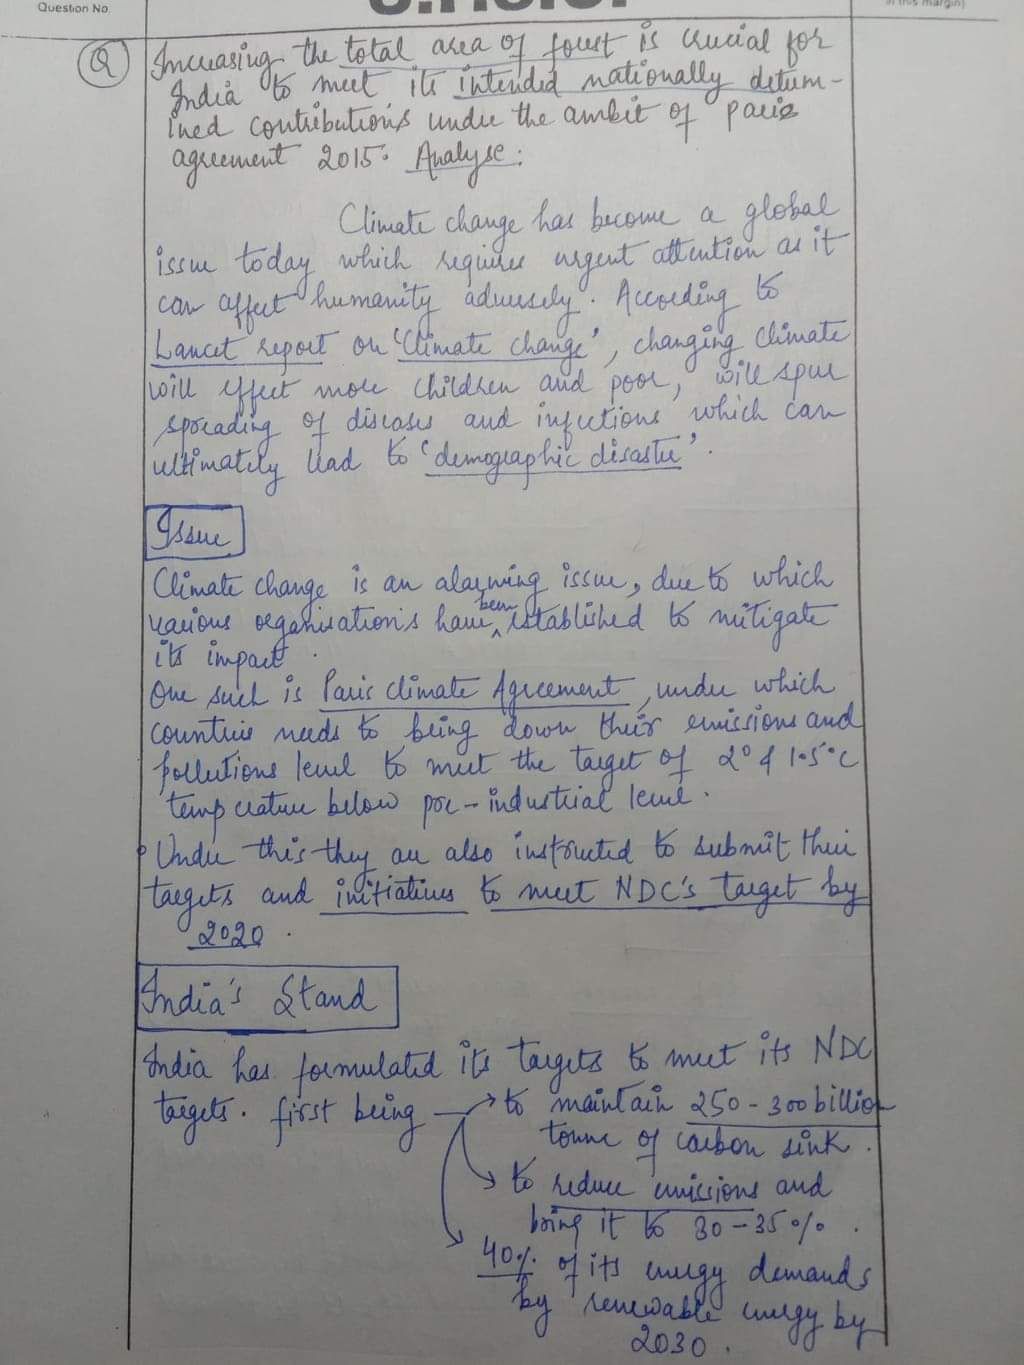 Question No.
in this margin)
Q Increasing the total area of forest is crucial for
India to meet its intended nationally determ-
ined contributions under the ambit of paris
agreement 2015. Analyse:
Climate change has become a global
issue today which requires urgent attention as it
can affect humanity adversely. According to
Lancet report on 'Climate change', changing climate
will effect more children and poor, will spur
spreading of diseases and infections which can
ultimately lead to 'demographic disaster'.
Issue
Climate change is an alarming issue, due to which
various organisations have been established to mitigate
its impact.
One such is Paris Climate Agreement, under which
countries needs to being down their emissions and
pollutions level to meet the target of 2° & 1.5°C
temperature below pre-industrial level.
Under this they are also instructed to submit their
targets and initiatives to meet NDC's target by
2020.
India's Stand
India has formulated its targets to meet its NDC
targets. first being → to maintain 250-300 billion
tonne of carbon sink.
→ to reduce emissions and
bring it to 30-35%.
→ 40% of its energy demands
by renewable energy by
2030.